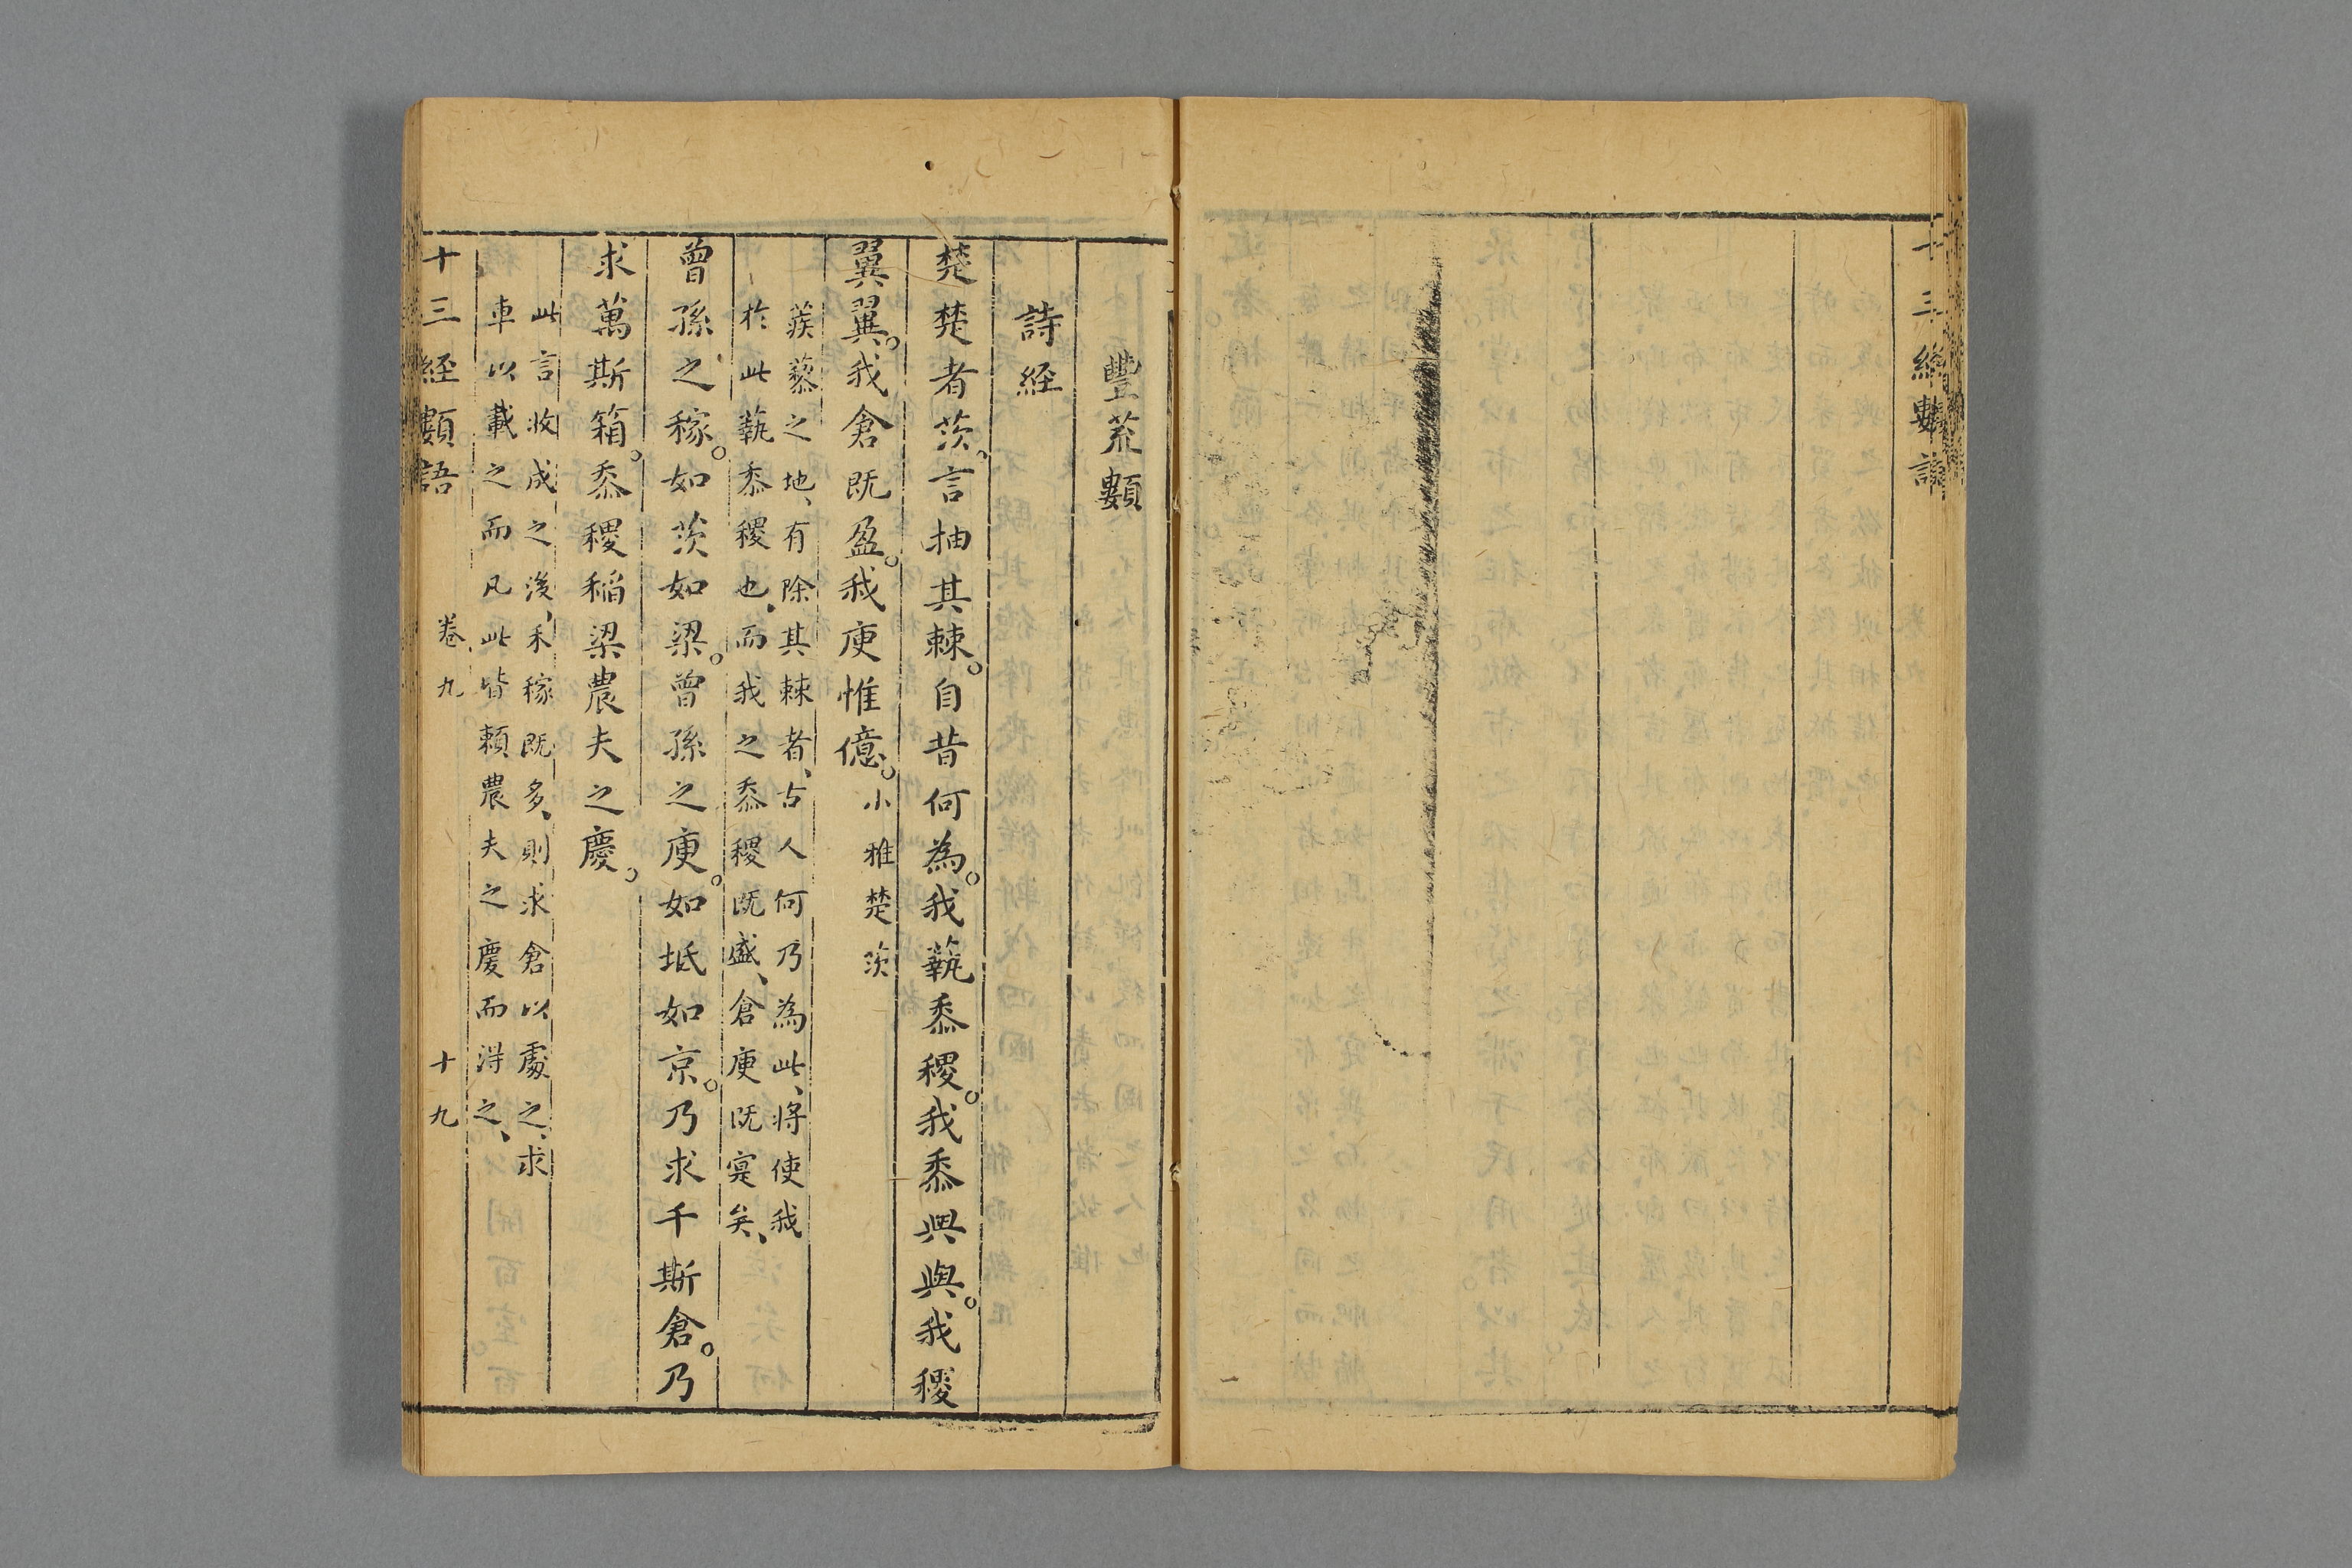 十三經類語
豐荒類
詩經
楚楚者茨。言抽其棘。自昔何為。我蓺黍稷。我黍與與。我稷
翼翼。我倉既盈。我庾惟億。小雅楚茨
蒺藜之地、有除其棘者、古人何乃為此、將使我
於此蓺黍稷也、而我之黍稷既盛、倉庾既寔矣、
曾孫之稼。如茨如梁。曾孫之庾。如坻如京。乃求千斯倉。乃
求萬斯箱。黍稷稻梁農夫之慶。
此言收成之後、禾稼既多、則求倉以處之、求
車以載之而凡此皆賴農夫之慶而得之、
十三經類語 卷九 十九